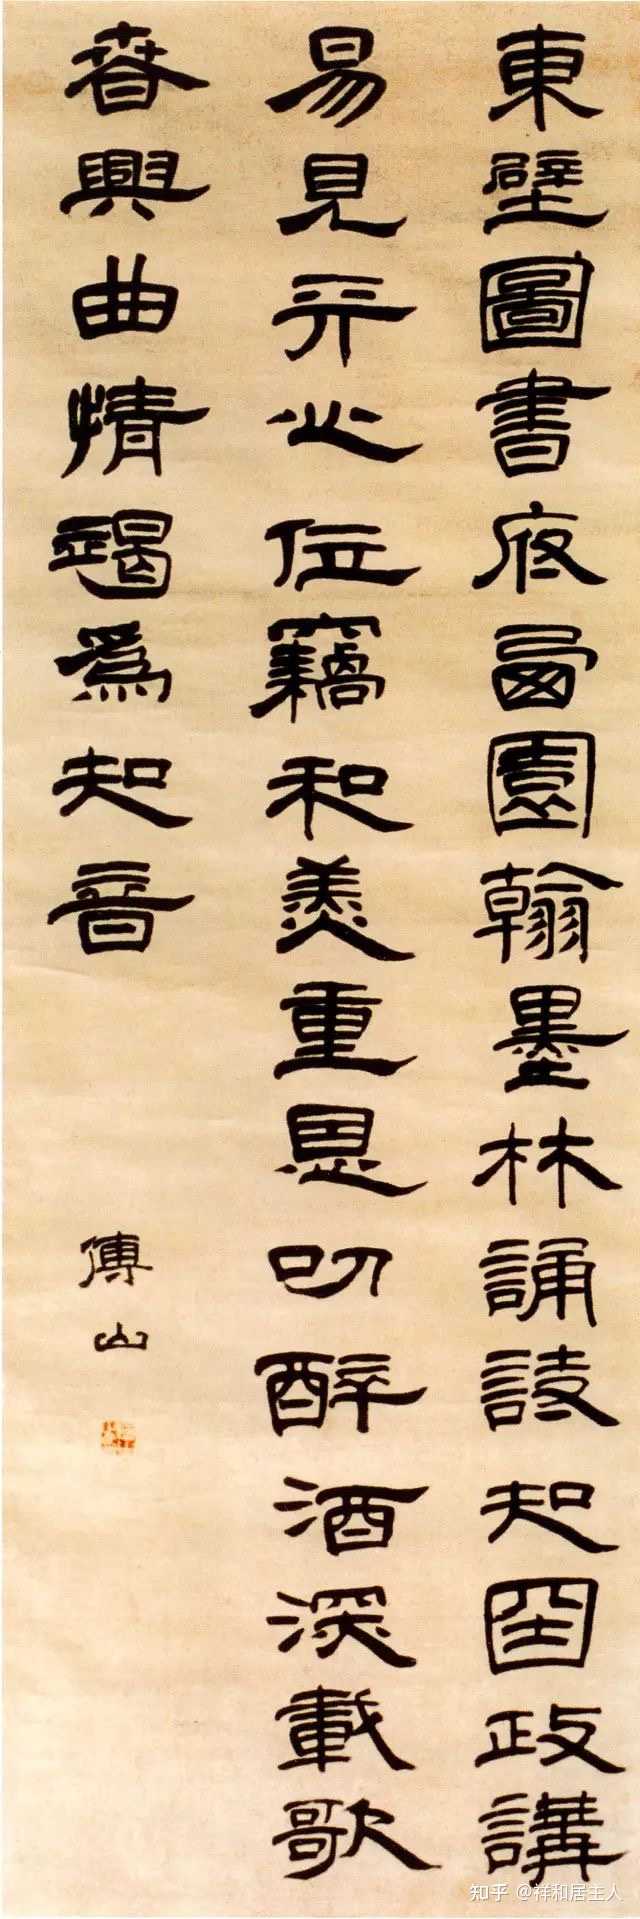 東壁圖書府西園翰墨林誦詩知國政講
易見天心位竊和羹重恩叨醉酒深載歌
春興曲情竭為知音
傅山
知乎 @祥和居主人